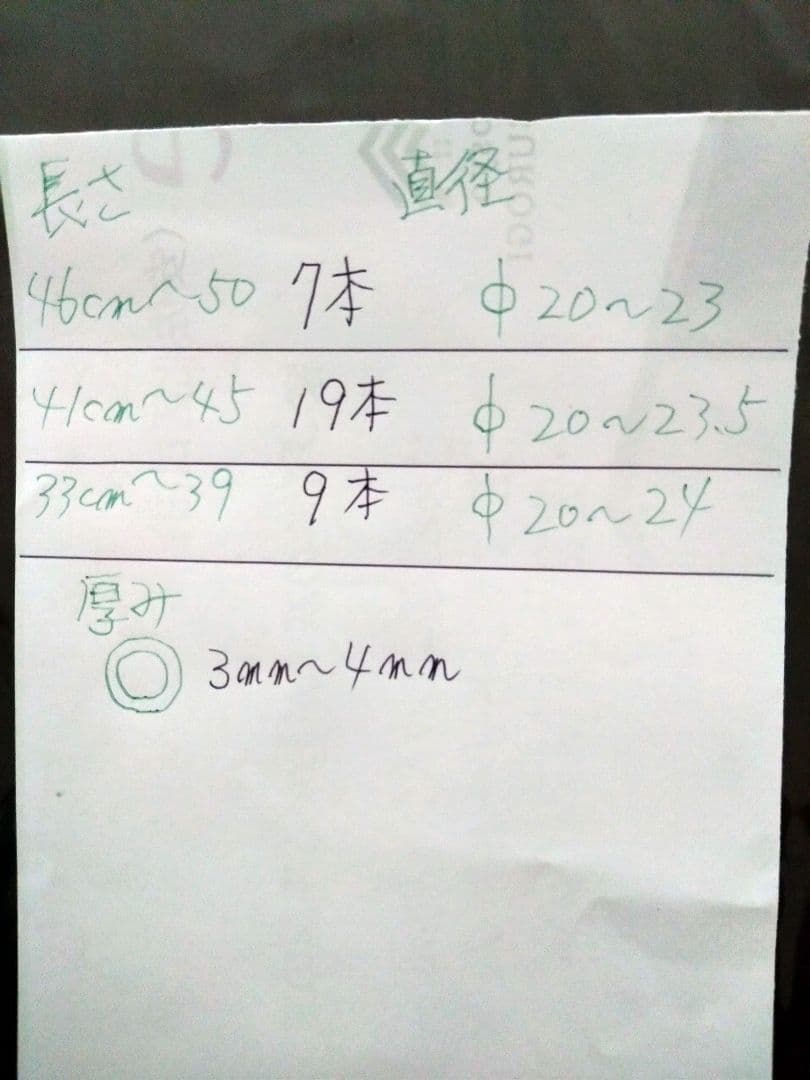 長さ 直径
46cm〜50 7本 φ20〜23
41cm〜45 19本 φ20〜23.5
33cm〜39 9本 φ20〜24
厚み
◎ 3mm〜4mm